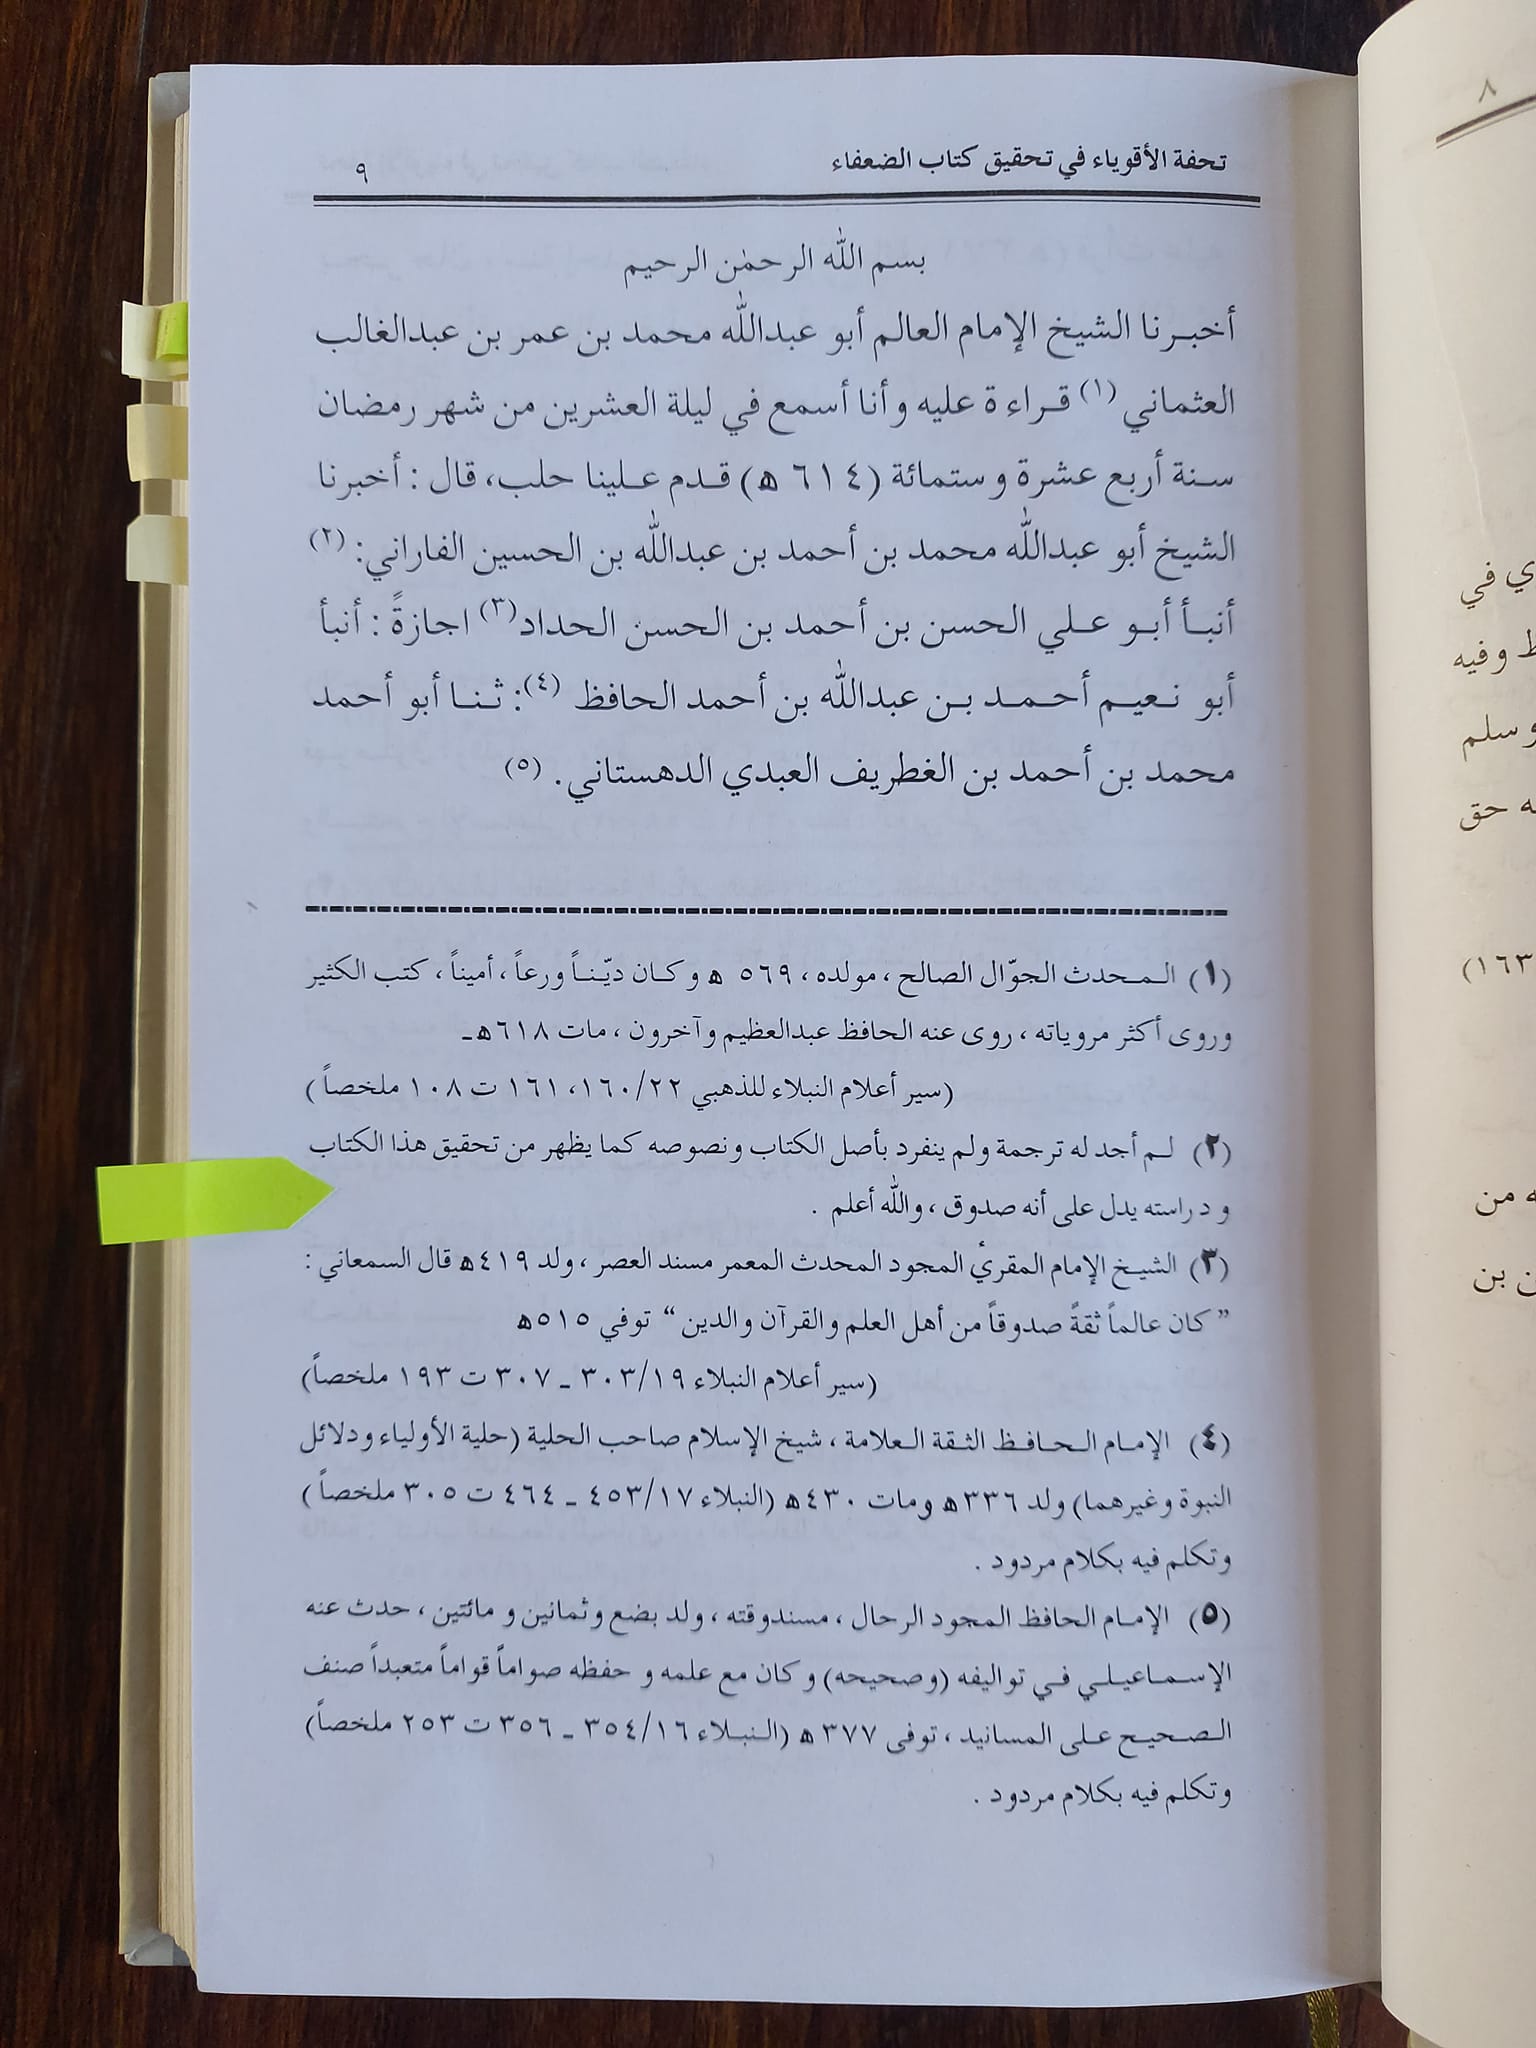 تحفة الأقوياء في تحقيق كتاب الضعفاء ٩
بسم الله الرحمٰن الرحيم
أخبرنا الشيخ الإمام العالم أبو عبدالله محمد بن عمر بن عبدالغالب
العثماني (١) قراءة عليه وأنا أسمع في ليلة العشرين من شهر رمضان
سنة أربع عشرة وستمائة (٦١٤ ه) قدم علينا حلب، قال : أخبرنا
الشيخ أبو عبدالله محمد بن أحمد بن عبدالله بن الحسين الفاراني: (٢)
أنبأ أبو علي الحسن بن أحمد بن الحسن الحداد(٣) اجازةً : أنبأ
أبو نعيم أحمد بن عبدالله بن أحمد الحافظ (٤): ثنا أبو أحمد
محمد بن أحمد بن الغطريف العبدي الدهستاني. (٥)
(١) المحدث الجوّال الصالح ، مولده ، ٥٦٩ ه وكان ديّناً ورعاً ، أميناً ، كتب الكثير
وروى أكثر مروياته ، روى عنه الحافظ عبدالعظيم وآخرون ، مات ٦١٨هـ
(سير أعلام النبلاء للذهبي ١٦٠/٢٢، ١٦١ ت ١٠٨ ملخصاً)
(٢) لم أجد له ترجمة ولم ينفرد بأصل الكتاب ونصوصه كما يظهر من تحقيق هذا الكتاب
ودراسته يدل على أنه صدوق ، والله أعلم .
(٣) الشيخ الإمام المقرئ المجود المحدث المعمر مسند العصر ، ولد ٤١٩ه قال السمعاني :
”كان عالماً ثقةً صدوقاً من أهل العلم والقرآن والدين“ توفي ٥١٥ه
(سير أعلام النبلاء ٣٠٣/١٩ ـ ٣٠٧ ت ١٩٣ ملخصاً)
(٤) الإمام الحافظ الثقة العلامة ، شيخ الإسلام صاحب الحلية (حلية الأولياء ودلائل
النبوة وغيرهما) ولد ٣٣٦ه ومات ٤٣٠ه (النبلاء ٤٥٣/١٧ ـ ٤٦٤ ت ٣٠٥ ملخصاً)
وتكلم فيه بكلام مردود .
(٥) الإمام الحافظ المجود الرحال ، مسندوقته ، ولد بضع وثمانين و مائتين ، حدث عنه
الإسماعيلي في تواليفه (وصحيحه) وكان مع علمه و حفظه صواماً قواماً متعبداً صنف
الصحيح على المسانيد ، توفى ٣٧٧ه (النبلاء ٣٥٤/١٦ ـ ٣٥٦ ت ٢٥٣ ملخصاً)
وتكلم فيه بكلام مردود .
٨
ي في
وفيه
وسلم
ه حق
ه من
ن بن